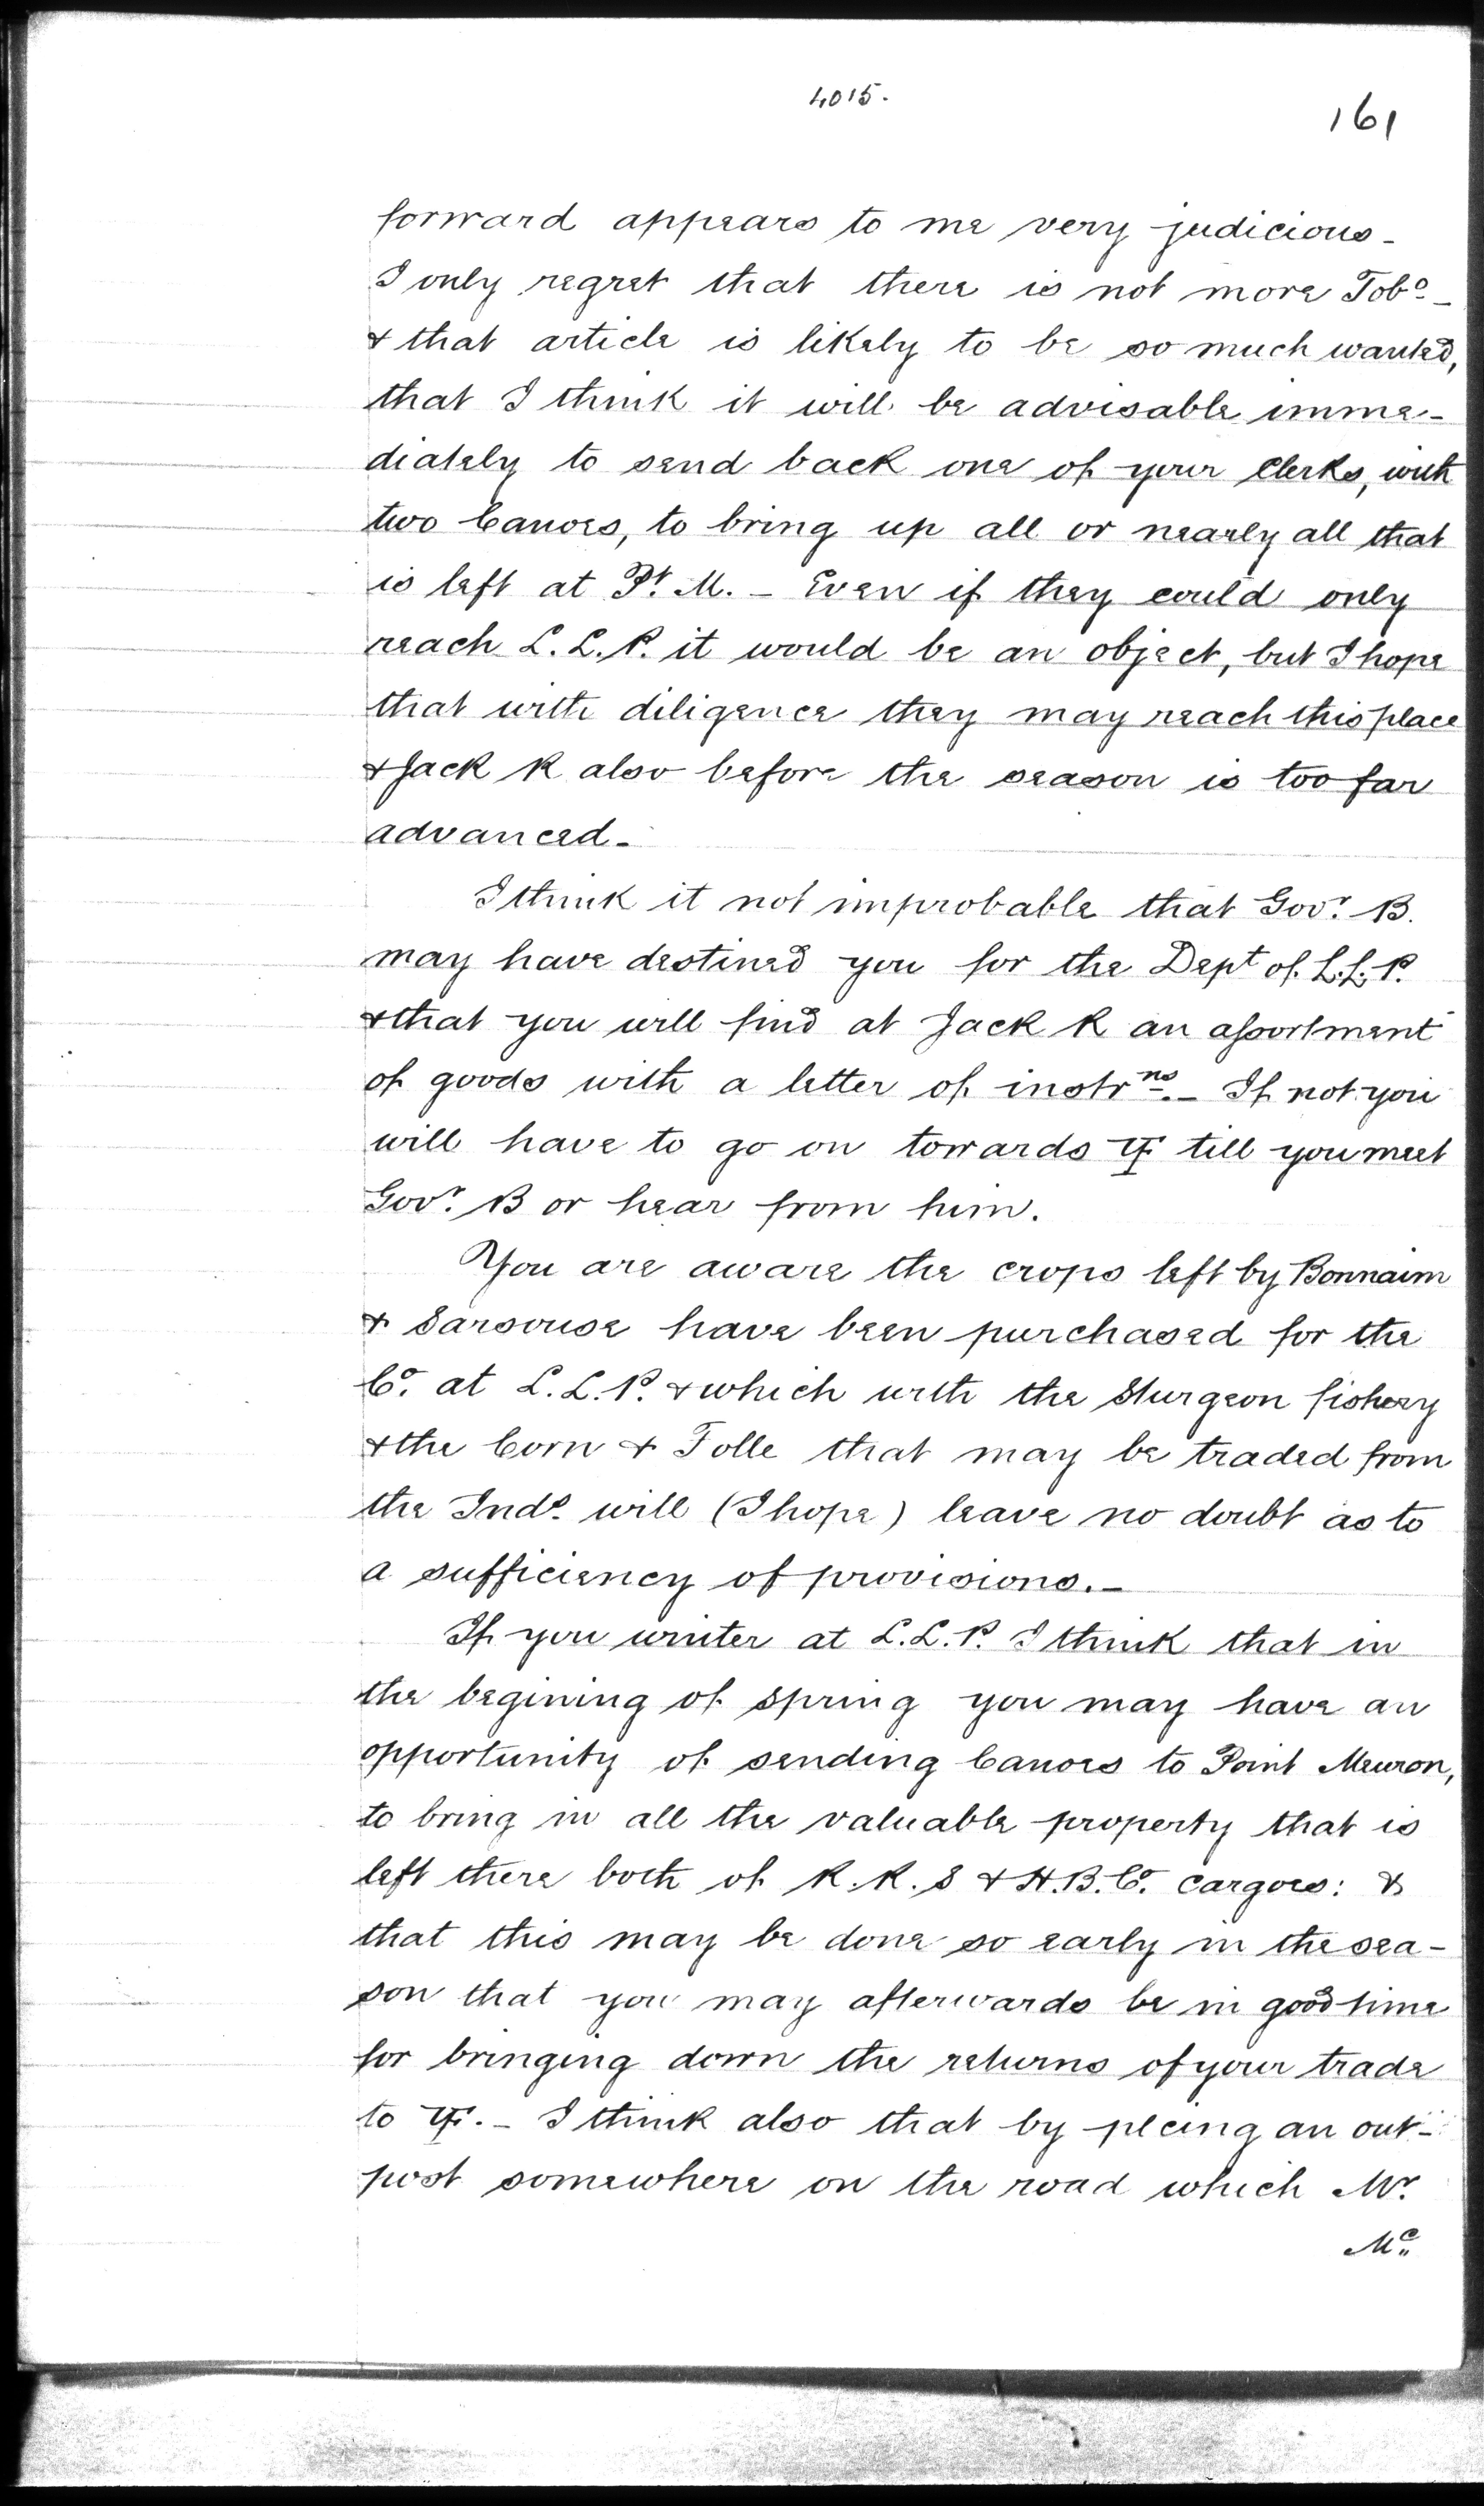 4015.
161
forward appears to me very judicious -
I only regret that there is not more Tobo -
& that article is likely to be so much wanted,
that I think it will be advisable imme-
diately to send back one of your Clerks, with
two Canoes, to bring up all or nearly all that
is left at Pt. M. - Even if they could only
reach L. L. P. it would be an object, but I hope
that with diligence they may reach this place
& Jack R also before the season is too far
advanced -
I think it not improbable that Govr. B.
may have destined you for the Dept of L. L. P.
& that you will find at Jack R an assortment
of goods with a letter of instrns. - If not you
will have to go on towards YF till you meet
Govr. B or hear from him.
You are aware the crops left by Bonnaim
& Sarsouse have been purchased for the
Co. at L. L. P. & which with the Sturgeon fishery
& the Corn & Folle that may be traded from
the Inds. will (I hope) leave no doubt as to
a sufficiency of provisions. -
If you winter at L. L. P. I think that in
the begining of spring you may have an
opportunity of sending Canoes to Point Meuron,
to bring in all the valuable property that is
left there both of R. R. S & H. B. Co. cargoes: &
that this may be done so early in the sea-
son that you may afterwards be in good time
for bringing down the returns of your trade
to YF. - I think also that by plcing an out-
post somewhere on the road which Mr.
Mc